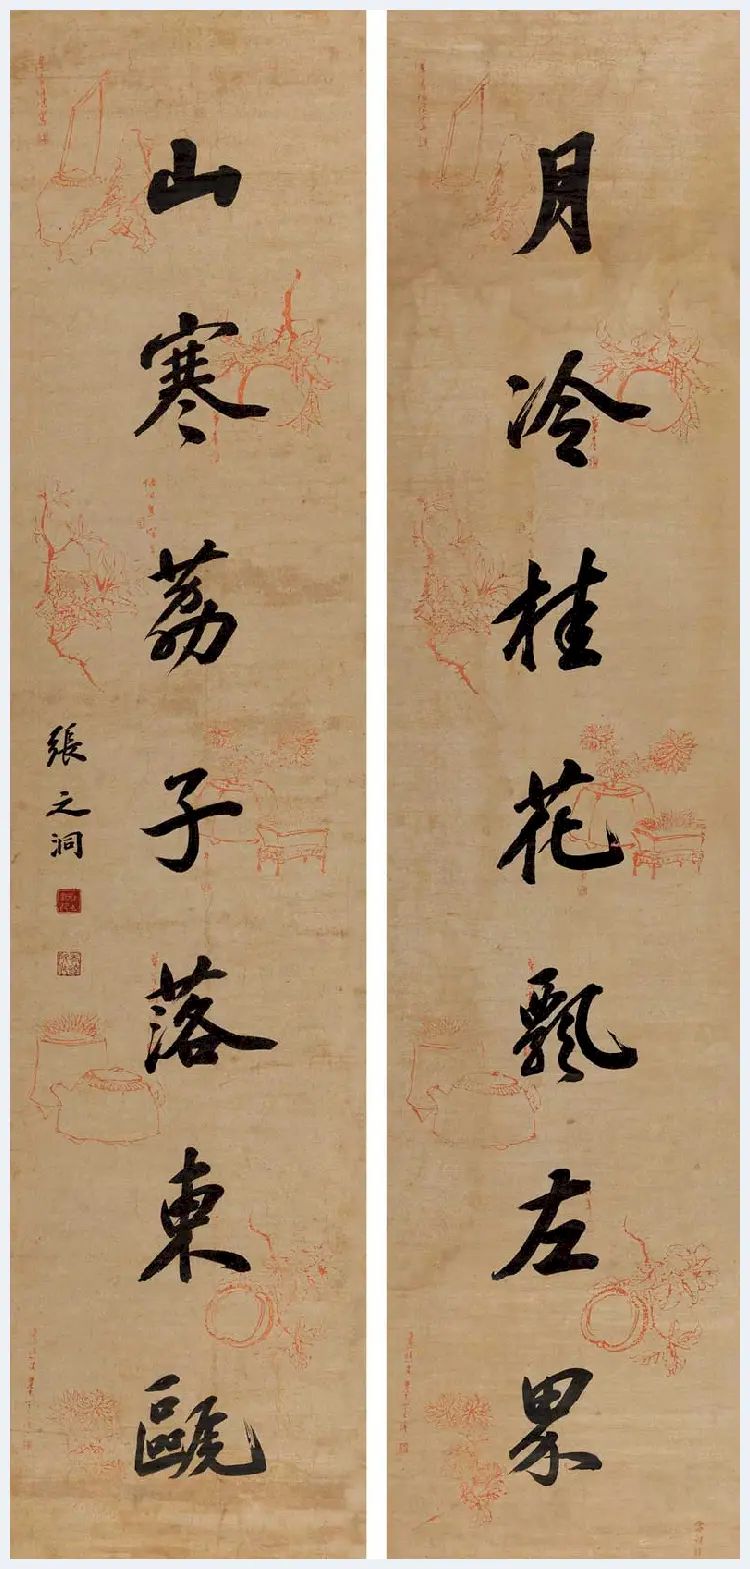 月冷桂花飄左界
山寒荔子落東甌
張之洞